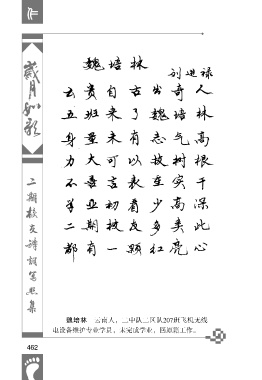 作
岁月如歌
二期校友诗词笔墨集
魏培林
刘进禄
云贵自古出奇人
五班来了魏培林
身量未有志气高
力大可以拔树根
不善言表重实干
学业初着少高深
二期校友多类此
都有一颗红亮心
魏培林 云南人,二中队二区队207班飞机无线
电设备维护专业学员,未完成学业,回原籍工作。
462